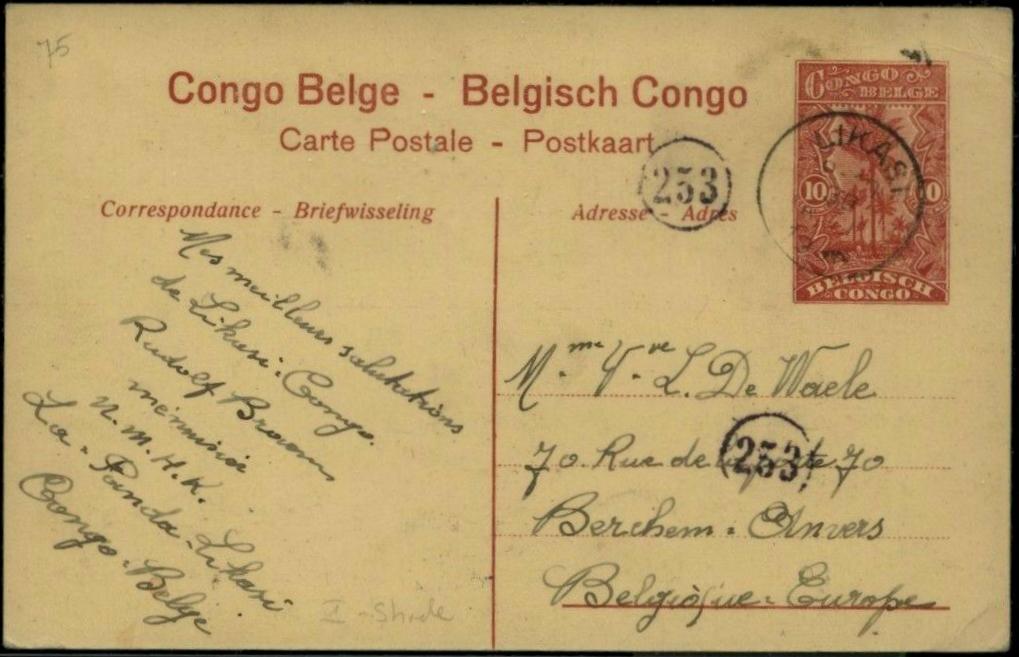 75
Congo Belge - Belgisch Congo
Carte Postale - Postkaart
CONGO BELGE
10 10
BELGISCH CONGO
LIKASI
253
Correspondance - Briefwisseling
Adresse - Adres
Mes meilleurs salutations
de Likasi. Congo.
Rudolf
menuisier
U.M.H.K.
La-Panda-Likasi
Congo-Belge
Mme Vve L. De Waele
70. Rue de 70
253
Berchem-Anvers
Belgique-Europe